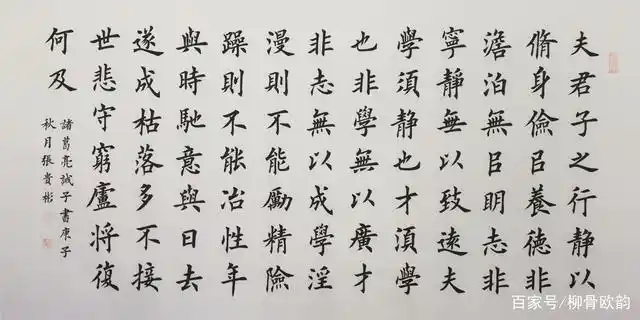 夫君子之行静以
脩身儉㠯養德非
澹泊無㠯明志非
寧靜無以致遠夫
學須静也才須學
也非學無以廣才
非志無以成學淫
漫則不能勵精險
躁則不能冶性年
與時馳意與日去
遂成枯落多不接
世悲守窮廬將復
何及
諸葛亮誡子書庚子
秋月張貴彬
百家号/柳骨欧韵